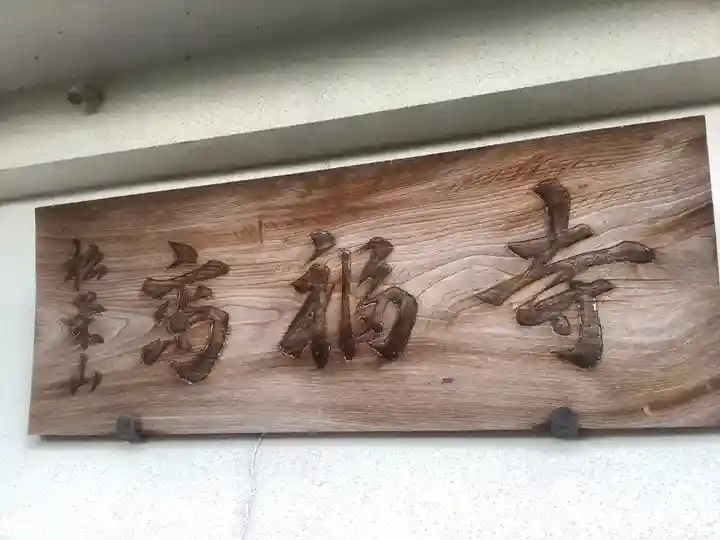 松栄山
高福寺